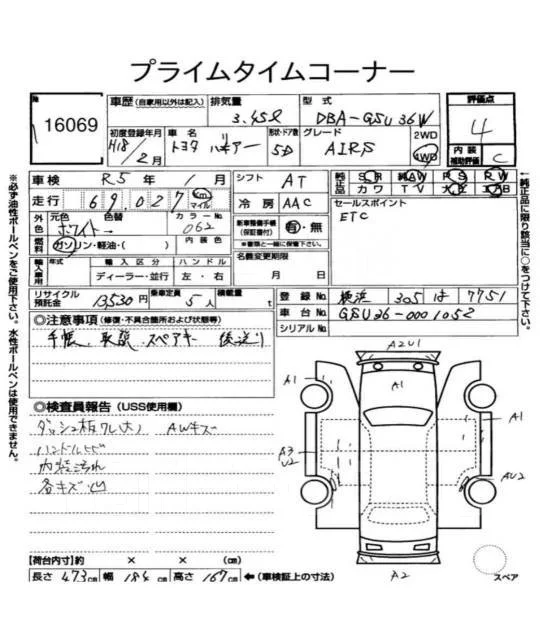 プライムタイムコーナー
16069
車歴 (自家用以外は記入) 排気量 3.45ℓ 型式 DBA-GSU36W
初度登録年月 H18/2月 車名 トヨタ ハリアー 形状・ドア数 5D グレード AIRS 2WD 4WD
評価点 4
内装補助評価 C
車検 R5年 /1月 シフト AT 純正品 SR AW PS PW
走行 69,027 km マイル 冷房 AAC カワ TV
外色 元色 ホワイト→ 色替 カラーNo. 062 新車整備手帳(保証書付) 有・無 ※書類と一緒に保管下さい。
セールスポイント
ETC
燃料 ガソリン・軽油・( ) 内装色
名義変更期限 月 日
輸入車用 年式 輸入区分 ディーラー・並行 ハンドル 左・右
リサイクル預託金 13,530円 乗車定員 5人 積載量 t
登録No. 横浜 305 は 7751
車台No. GSU36-0001052
シリアルNo.
◎注意事項 (修復・不具合箇所および状態等)
手帳、取説、スペアキー 後送り
◎検査員報告 (USS使用欄)
ダッシュ板ワレ(大) AWキズ
内装汚れ
各キズ凹
A2U1
A1
A1
A1
A3
U2
AU2
A2
スペア
【荷台内寸】約 × × (cm)
長さ 473cm 幅 184cm 高さ 167cm ←(車検証上の寸法)
※必ず油性ボールペンをご使用下さい。水性ボールペンは使用できません。
←純正品に限り該当に○をつけて下さい。